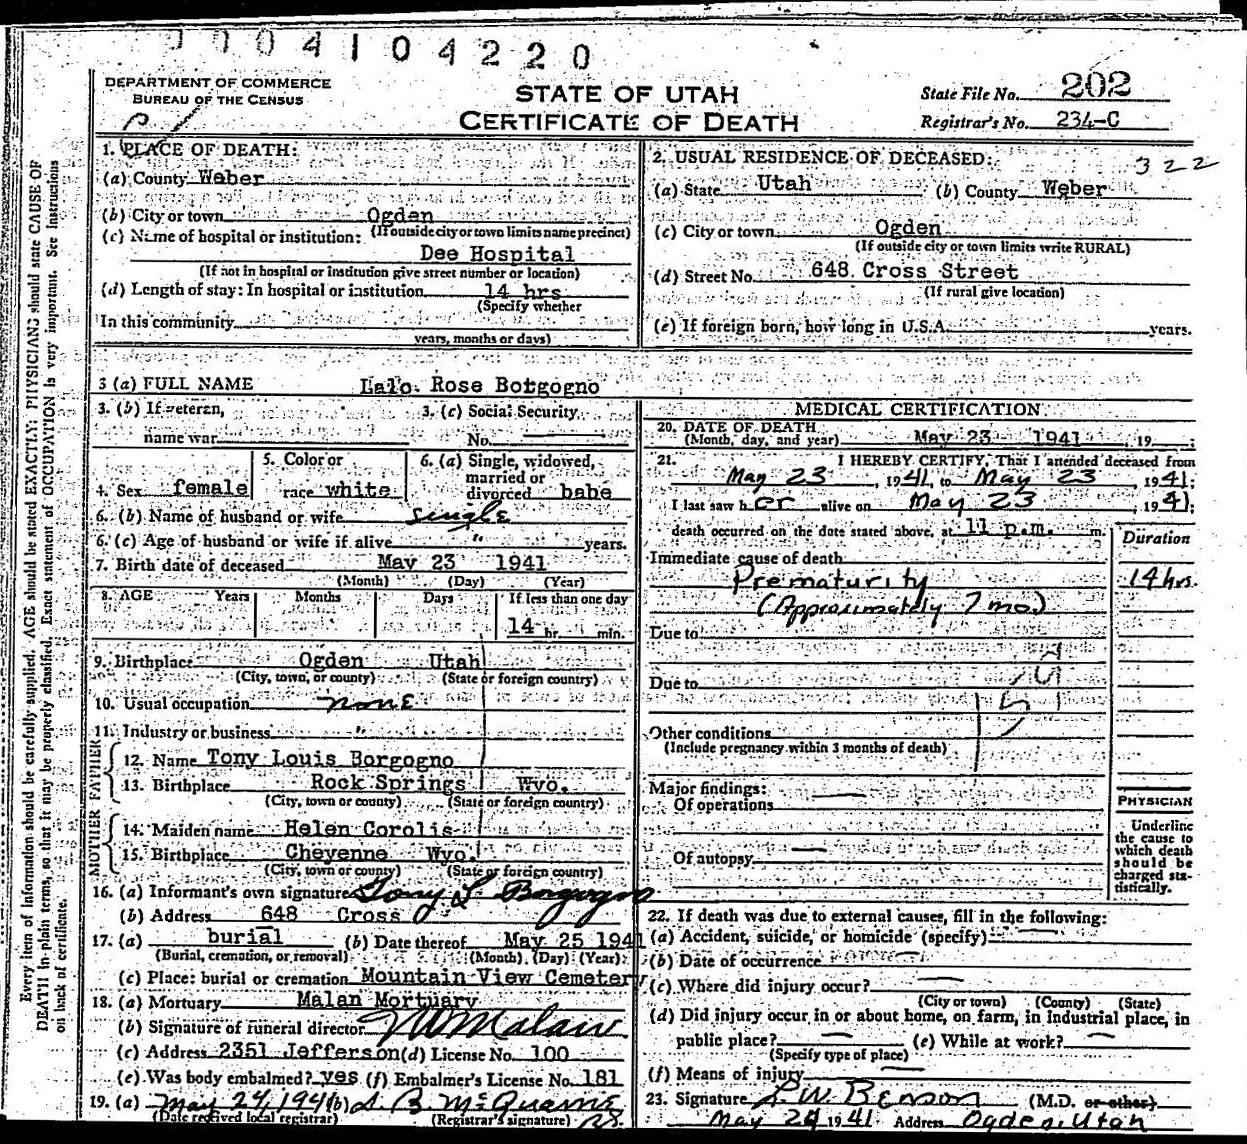 0004104220
DEPARTMENT OF COMMERCE
BUREAU OF THE CENSUS
STATE OF UTAH
CERTIFICATE OF DEATH
State File No. 202
Registrar's No. 234-C
1. PLACE OF DEATH:
(a) County Weber
(b) City or town Ogden
(If outside city or town limits name precinct)
(c) Name of hospital or institution:
Dee Hospital
(If not in hospital or institution give street number or location)
(d) Length of stay: In hospital or institution 14 hrs
(Specify whether
In this community
years, months or days)
2. USUAL RESIDENCE OF DECEASED: 322
(a) State Utah (b) County Weber
(c) City or town Ogden
(If outside city or town limits write RURAL)
(d) Street No. 648 Cross Street
(If rural give location)
(e) If foreign born, how long in U.S.A. years.
3 (a) FULL NAME Lalo Rose Botgogno
3. (b) If veteran, 3. (c) Social Security
name war No.
4. Sex female 5. Color or race white 6. (a) Single, widowed, married or divorced babe
6. (b) Name of husband or wife single
6. (c) Age of husband or wife if alive " years.
7. Birth date of deceased May 23 1941
(Month) (Day) (Year)
8. AGE Years Months Days If less than one day
14 hr. min.
9. Birthplace Ogden Utah
(City, town, or county) (State or foreign country)
10. Usual occupation none
11. Industry or business "
FATHER
12. Name Tony Louis Borgogno
13. Birthplace Rock Springs Wyo.
(City, town or county) (State or foreign country)
MOTHER
14. Maiden name Helen Corolis
15. Birthplace Cheyenne Wyo.
(City, town or county) (State or foreign country)
16. (a) Informant's own signature Tony L Borgogno
(b) Address 648 Cross
17. (a) burial (b) Date thereof May 25 1941
(Burial, cremation, or removal) (Month) (Day) (Year)
(c) Place: burial or cremation Mountain View Cemetery
18. (a) Mortuary Malan Mortuary
(b) Signature of funeral director Malan
(c) Address 2351 Jefferson (d) License No. 100
(e) Was body embalmed? yes (f) Embalmer's License No. 181
19. (a) May 24, 1941 (b)
(Date received local registrar) (Registrar's signature)
MEDICAL CERTIFICATION
20. DATE OF DEATH
(Month, day, and year) May 23 1941, 19 ;
21. I HEREBY CERTIFY, That I attended deceased from
May 23, 1941, to May 23 1941;
I last saw her alive on May 23 1941;
death occurred on the date stated above, at 11 p.m. m.
Duration
Immediate cause of death
Prematurity 14 hrs.
(Approximately 7 mo.)
Due to
Due to
Other conditions
(Include pregnancy within 3 months of death)
Major findings:
Of operations
Of autopsy
PHYSICIAN
Underline
the cause to
which death
should be
charged sta-
tistically.
22. If death was due to external causes, fill in the following:
(a) Accident, suicide, or homicide (specify)
(b) Date of occurrence
(c) Where did injury occur?
(City or town) (County) (State)
(d) Did injury occur in or about home, on farm, in industrial place, in
public place? (e) While at work?
(Specify type of place)
(f) Means of injury
23. Signature W. Benson (M.D. or other)
May 24 1941 Address Ogden, Utah
Every item of information should be carefully supplied. AGE should be stated EXACTLY: PHYSICIANS should state CAUSE OF
DEATH in plain terms, so that it may be properly classified. Exact statement of OCCUPATION is very important. See instructions
on back of certificate.